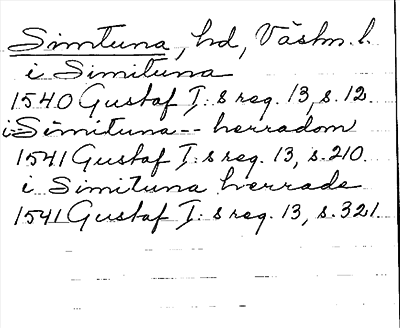 Simtuna, hd, Västm. l.
i Simituna
1540 Gustaf I:s reg. 13, s. 12.
i Simituna -- herradom
1541 Gustaf I:s reg. 13, s. 210.
i Simituna herrade
1541 Gustaf I:s reg. 13, s. 321.